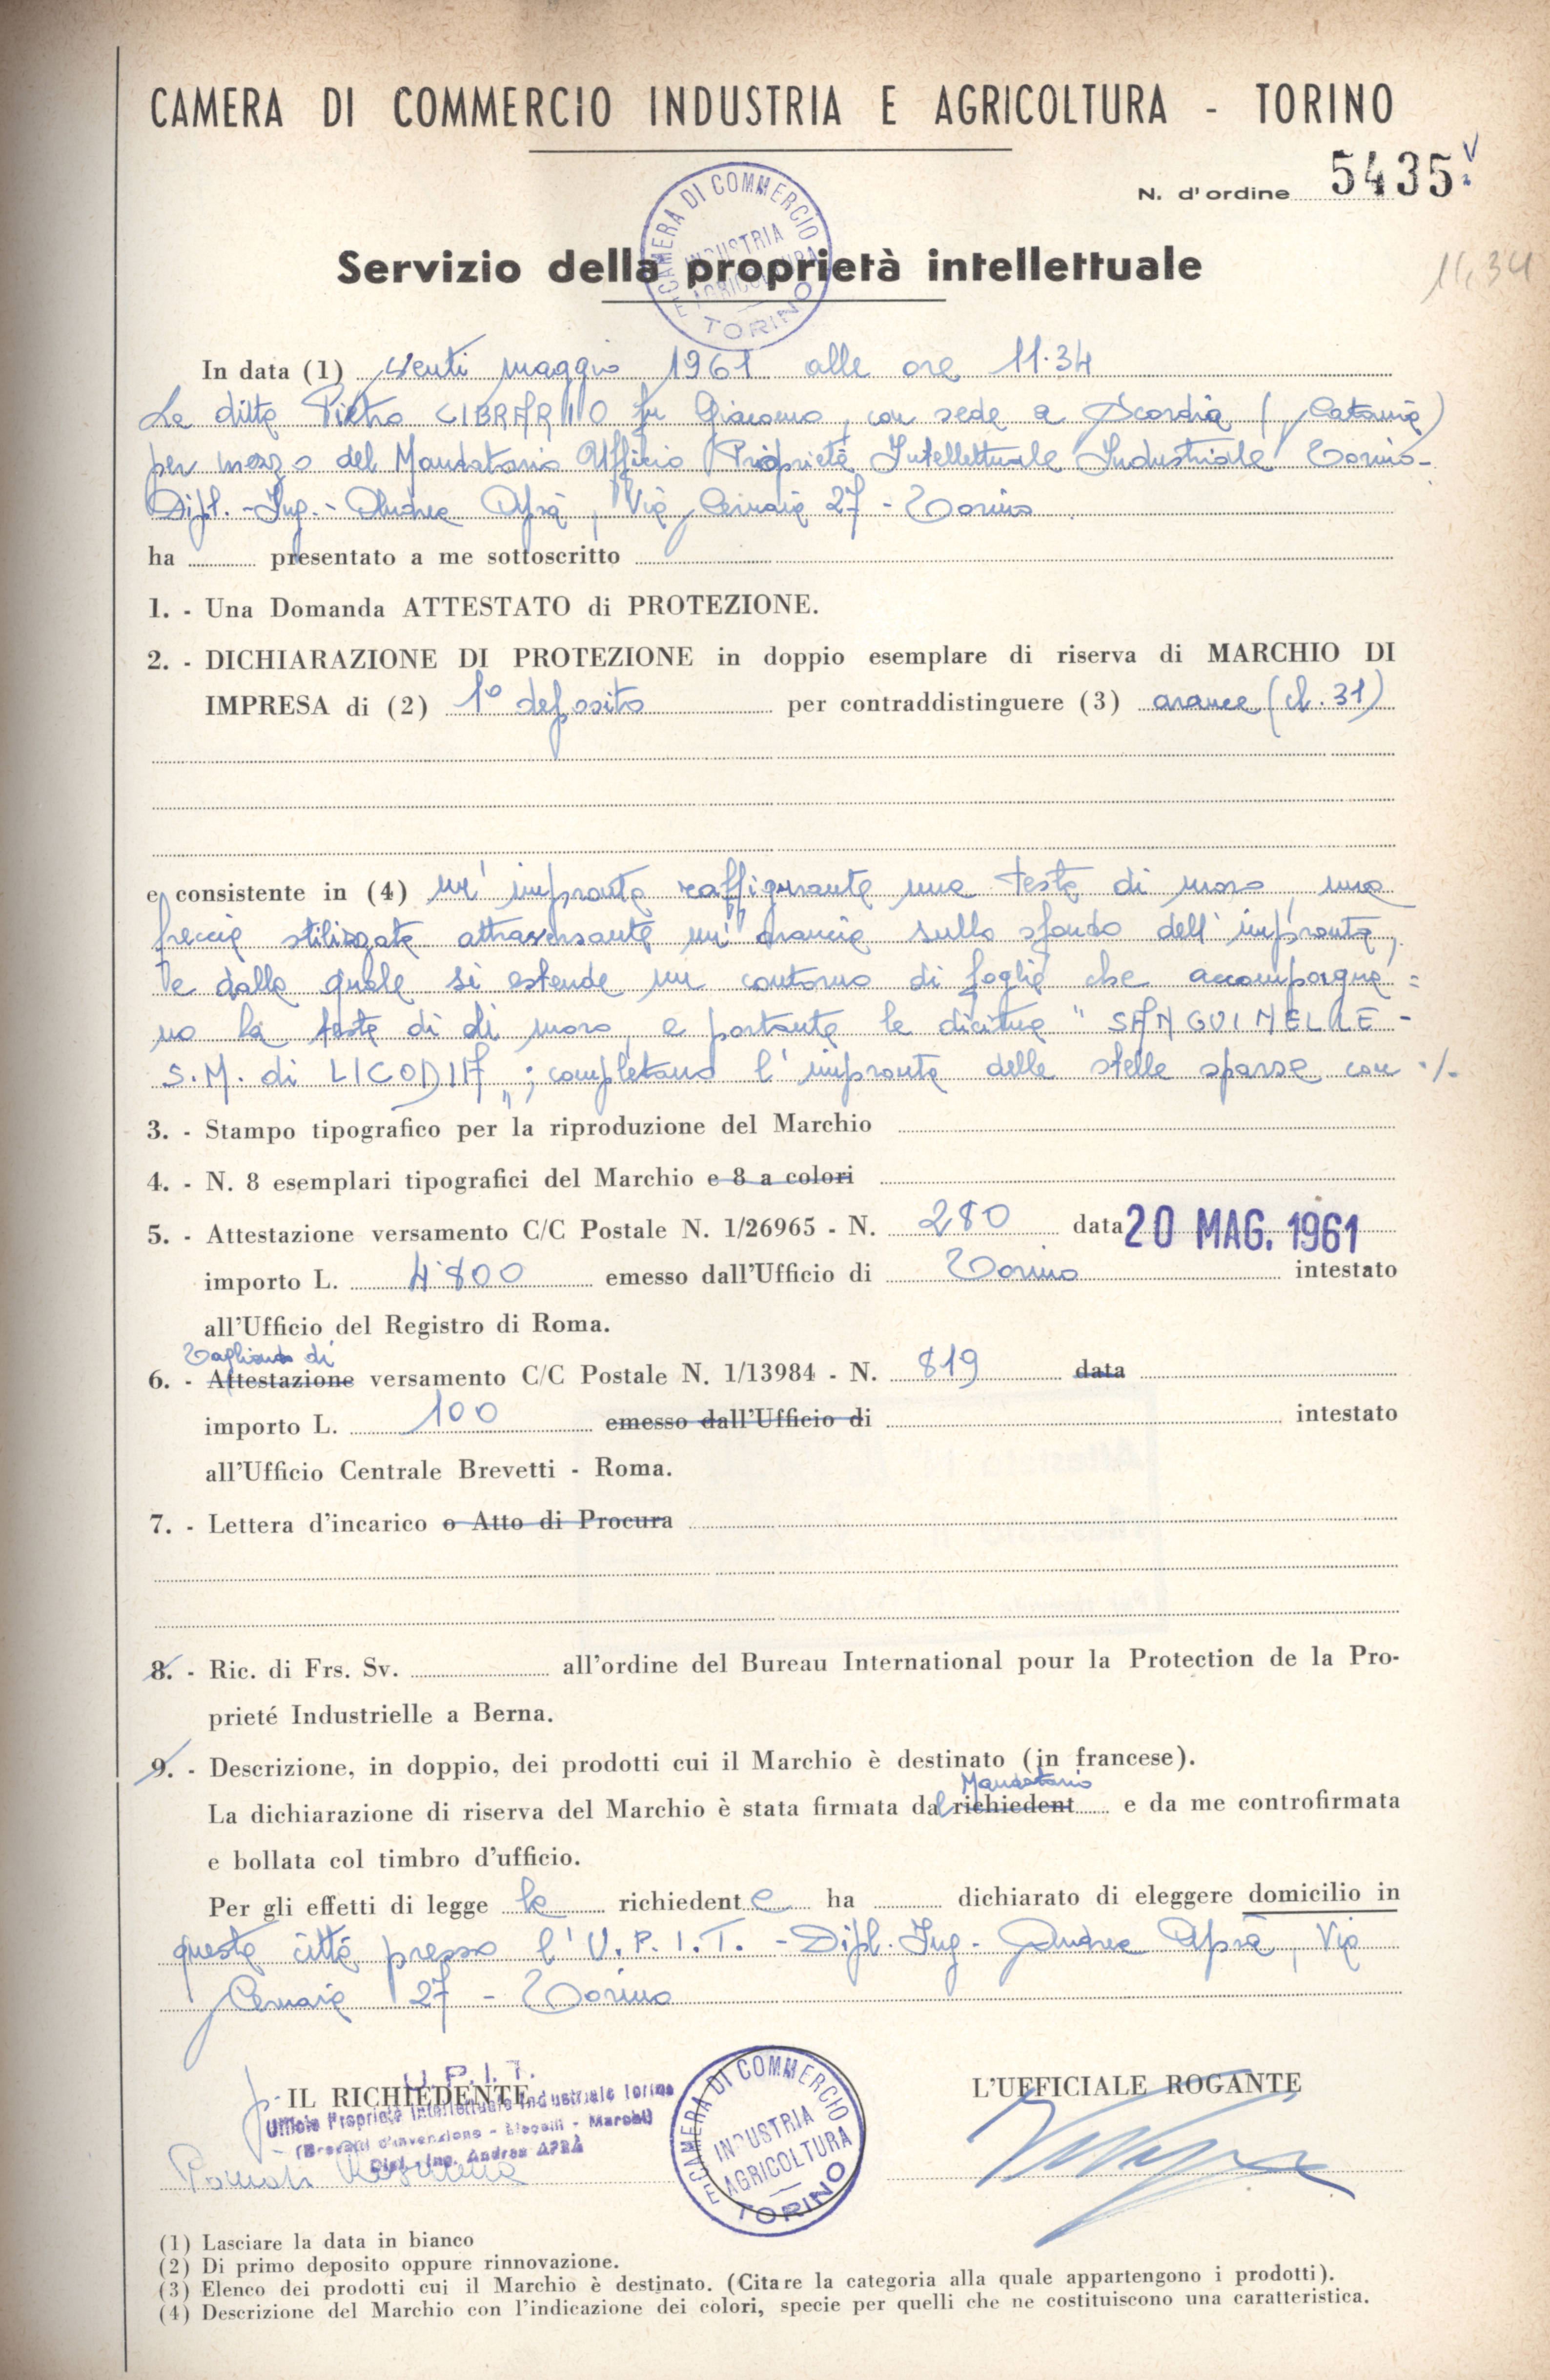 CAMERA DI COMMERCIO INDUSTRIA E AGRICOLTURA - TORINO
N. d'ordine 5435
CAMERA DI COMMERCIO INDUSTRIA E AGRICOLTURA TORINO
Servizio della proprietà intellettuale
11,34
In data (1) venti maggio 1961 alle ore 11.34
La ditta Pietro LIBRARIO fu Giacomo, con sede a Scordia (Catania)
per mezzo del Mandatario Ufficio Proprietà Intellettuale Industriale Torino-
Dipl. - Ing. - Andrea Aprà, Via Cernaia 27 - Torino
ha presentato a me sottoscritto
1. - Una Domanda ATTESTATO di PROTEZIONE.
2. - DICHIARAZIONE DI PROTEZIONE in doppio esemplare di riserva di MARCHIO DI
IMPRESA di (2) 1° deposito per contraddistinguere (3) arance (cl. 31)
e consistente in (4) un'impronta raffigurante una testa di moro, una
freccia stilizzata attraversante un'arancia sullo sfondo dell'impronta,
e dalla quale si estende un contorno di foglie che accompagna=
no la testa di di moro, e portante la dicitura "SANGUINELLE -
S.M. di LICODIA"; completano l'impronta delle stelle sparse con ./.
3. - Stampo tipografico per la riproduzione del Marchio
4. - N. 8 esemplari tipografici del Marchio e 8 a colori
5. - Attestazione versamento C/C Postale N. 1/26965 - N. 280 data 20 MAG. 1961
importo L. 4'800 emesso dall'Ufficio di Torino intestato
all'Ufficio del Registro di Roma.
Tagliando di
6. - Attestazione versamento C/C Postale N. 1/13984 - N. 819 data
importo L. 100 emesso dall'Ufficio di intestato
all'Ufficio Centrale Brevetti - Roma.
7. - Lettera d'incarico o Atto di Procura
8. - Ric. di Frs. Sv. all'ordine del Bureau International pour la Protection de la Pro-
prieté Industrielle a Berna.
9. - Descrizione, in doppio, dei prodotti cui il Marchio è destinato (in francese).
Mandatario
La dichiarazione di riserva del Marchio è stata firmata dal richiedent e da me controfirmata
e bollata col timbro d'ufficio.
Per gli effetti di legge la richiedente ha dichiarato di eleggere domicilio in
questa città presso l'U.P.I.T. - Dipl. Ing. Andrea Aprà, Via
Cernaia 27 - Torino
U.P.I.T.
IL RICHIEDENTE L'UFFICIALE ROGANTE
Ufficio Proprietà Intellettuale Industriale Torino
(Brevetti d'invenzione - Modelli - Marchi)
Dipl. Ing. Andrea APRÀ
CAMERA DI COMMERCIO INDUSTRIA E AGRICOLTURA TORINO
(1) Lasciare la data in bianco
(2) Di primo deposito oppure rinnovazione.
(3) Elenco dei prodotti cui il Marchio è destinato. (Citare la categoria alla quale appartengono i prodotti).
(4) Descrizione del Marchio con l'indicazione dei colori, specie per quelli che ne costituiscono una caratteristica.